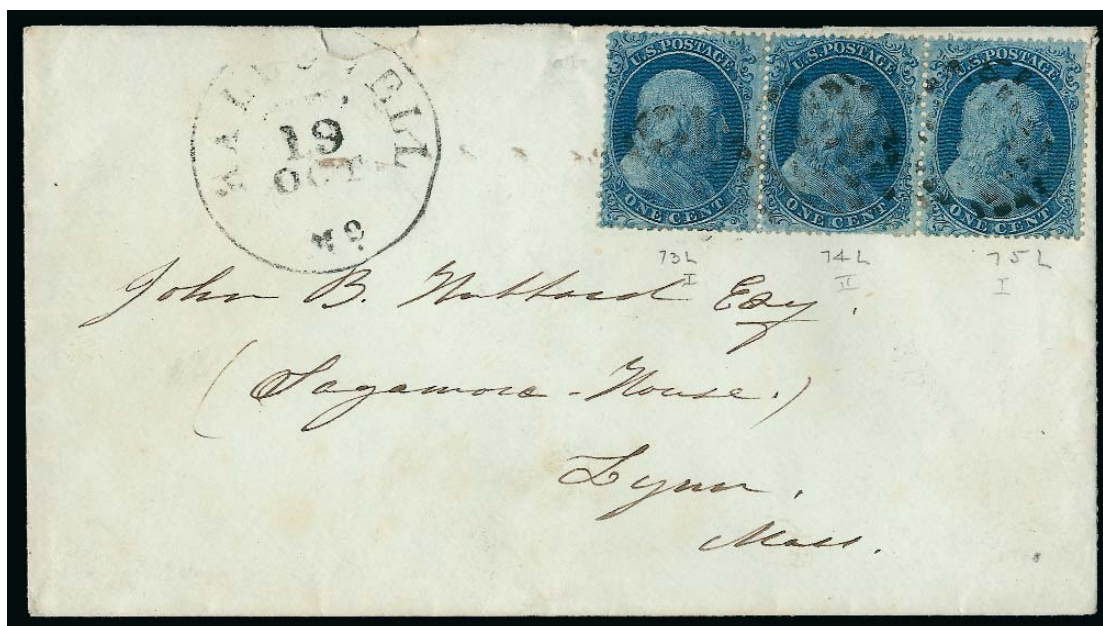 HALLOWELL
19
OCT
Me
U.S. POSTAGE
ONE CENT
U.S. POSTAGE
ONE CENT
U.S. POSTAGE
ONE CENT
73L
I
74L
II
75L
I
John B. Hubbard Esq.
(Sagamore-House.)
Lynn,
Mass.